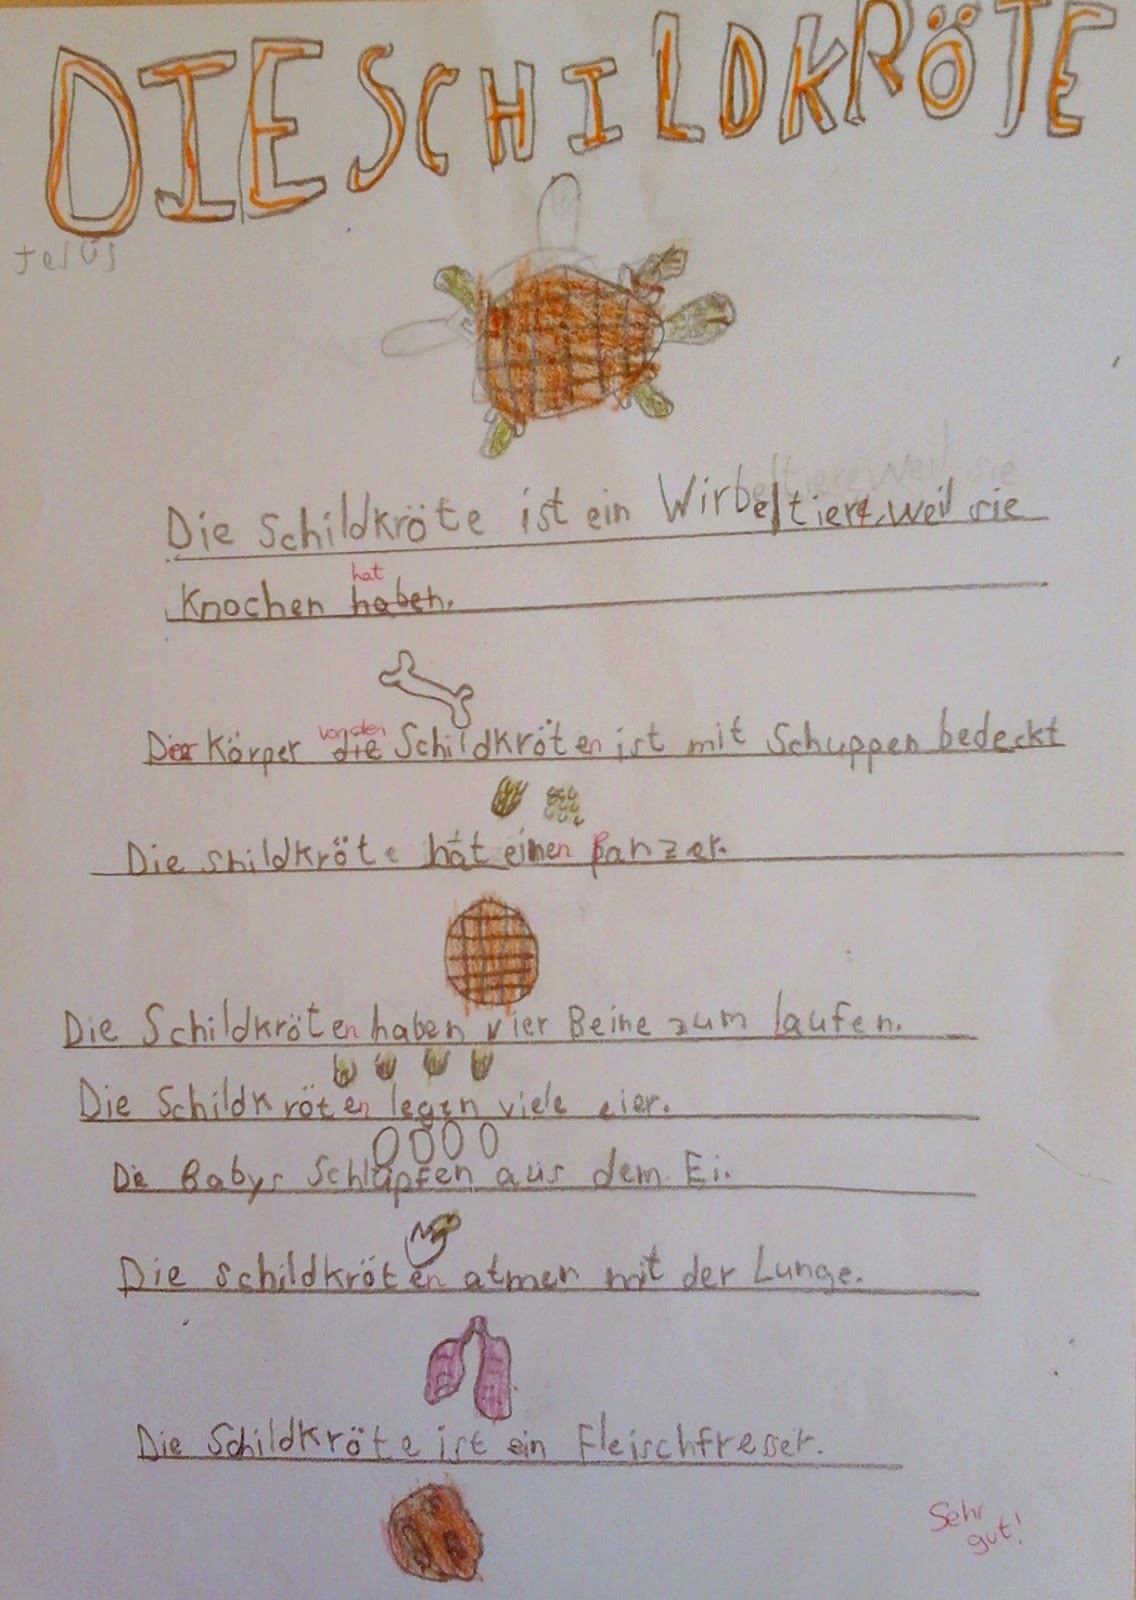 DIE SCHILDKRÖTE
Jesús
Die Schildkröte ist ein Wirbeltier, weil sie
hat
Knochen haben.
von den
Der Körper die Schildkröten ist mit Schuppen bedeckt
Die shildkröte hat einen Panzer.
Die Schildkröten haben vier Beine zum laufen.
Die Schildkröten legen viele eier.
Die Babys Schlüpfen aus dem Ei.
Die schildkröten atmen mit der Lunge.
Die Schildkröte ist ein Fleischfresser.
Sehr
gut!